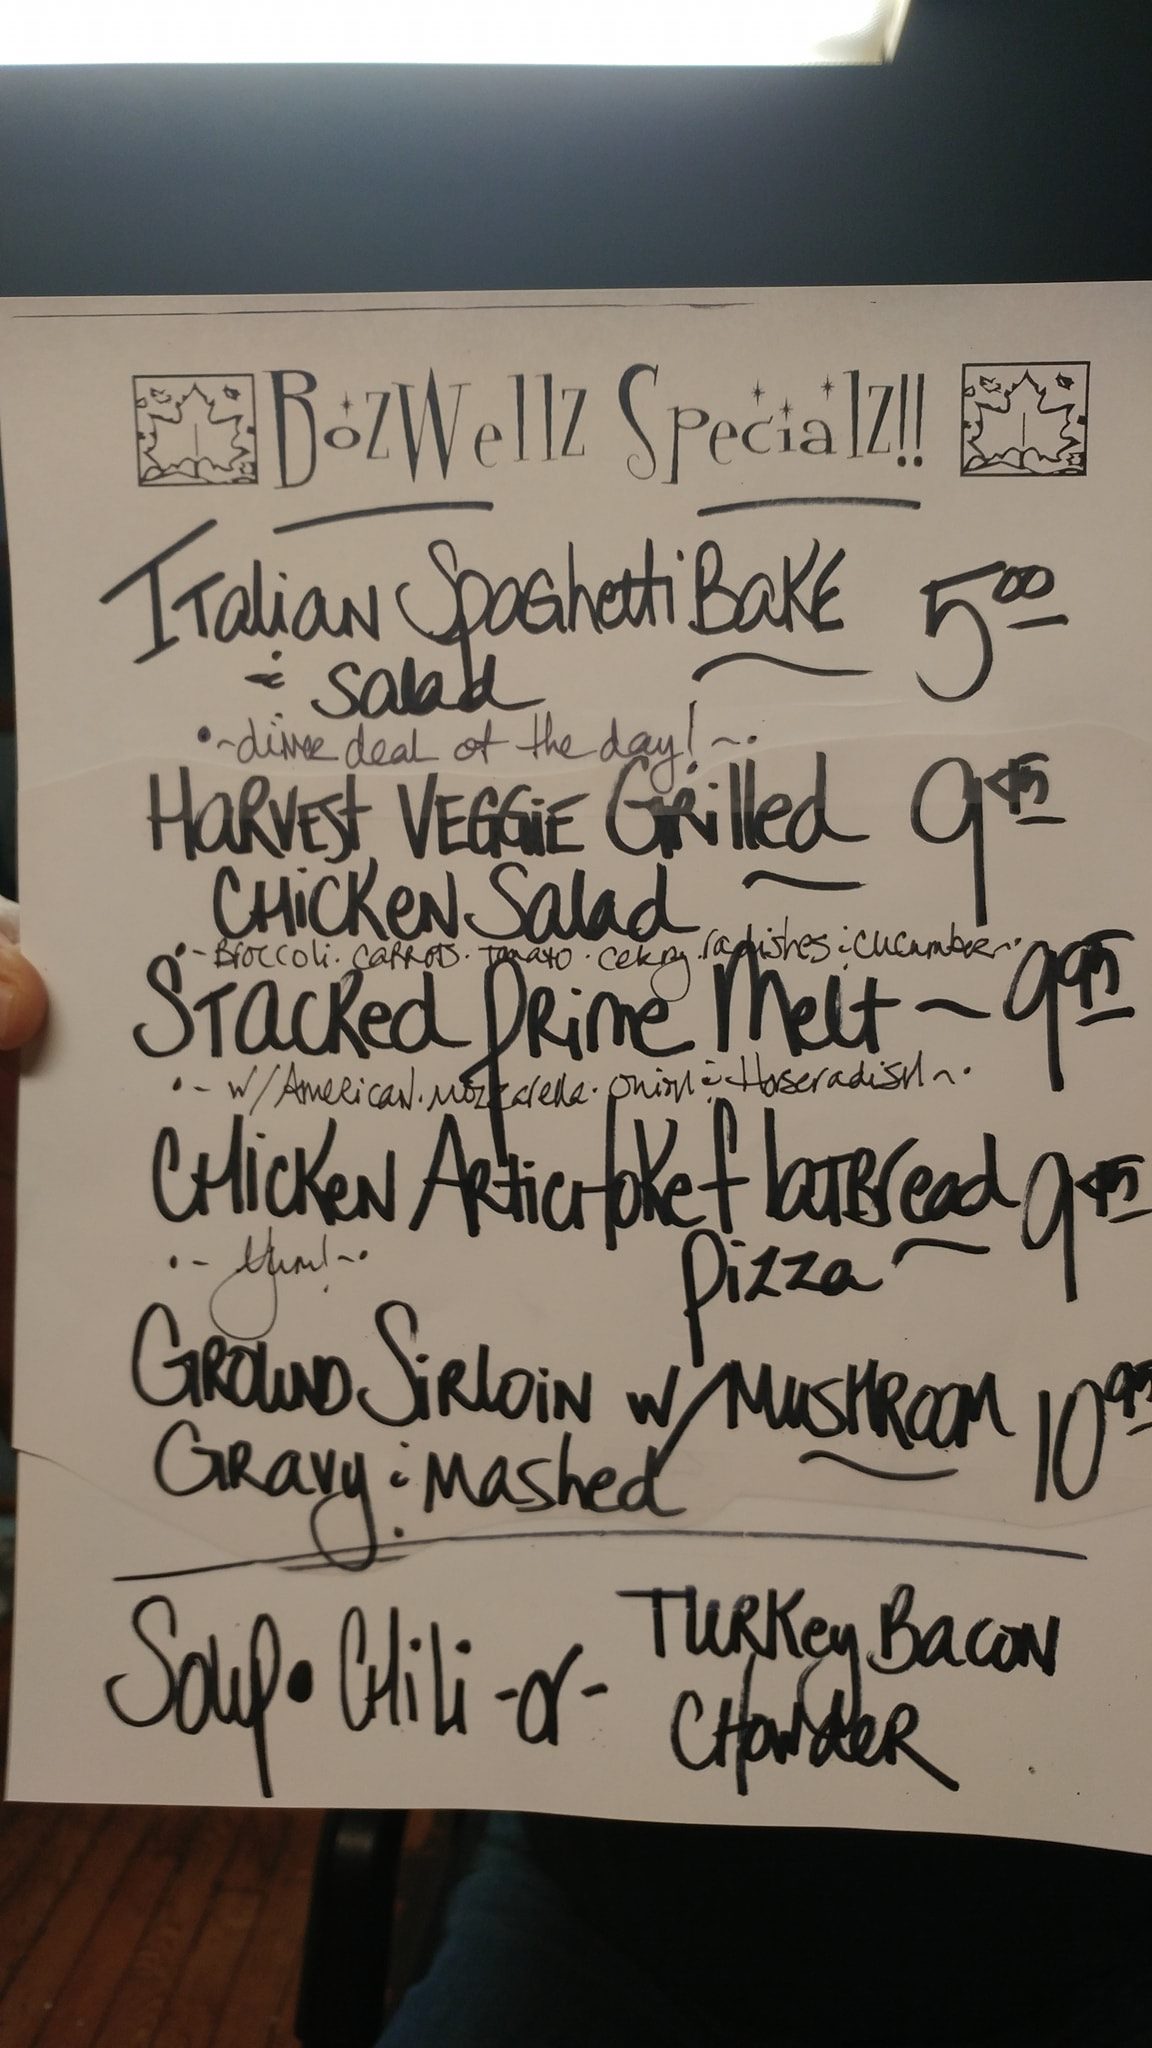 BozWellz Specialz!!
Italian Spaghetti Bake 5.00
& Salad
•~dime deal of the day!~•
Harvest Veggie Grilled 9.45
Chicken Salad
•~Broccoli·carrots·tomato·celery·radishes & cucumber~•
Stacked Prime Melt ~ 9.95
•~w/American·mozzarella·onion & Horseradish~•
Chicken Artichoke Flatbread 9.45
Pizza
•~Yum!~•
Ground Sirloin w/ Mushroom 10.95
Gravy & Mashed
Soup • Chili -or- Turkey Bacon
Chowder